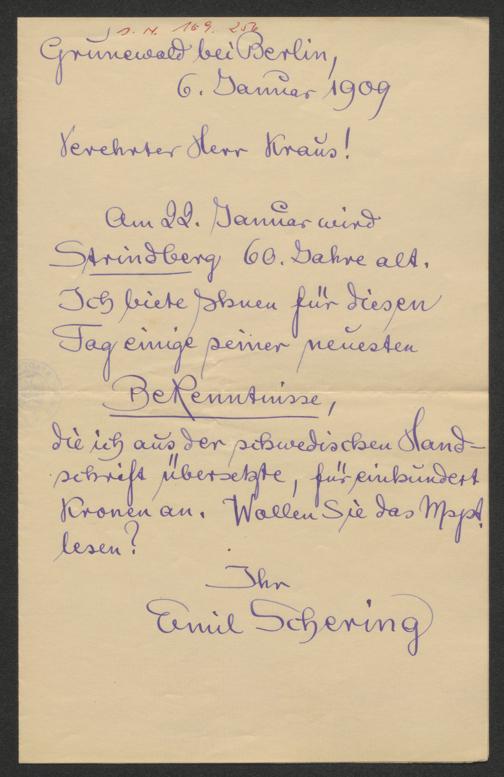 I. N. 169.256
Grunewald bei Berlin,
6. Januar 1909
Verehrter Herr Kraus!
Am 22. Januar wird
Strindberg 60. Jahre alt.
Ich biete Ihnen für diesen
Tag einige seiner neuesten
Bekenntnisse,
die ich aus der schwedischen Hand-
schrift übersetzte, für einhundert
Kronen an. Wollen Sie das Mspt.
lesen?
Ihr
Emil Schering